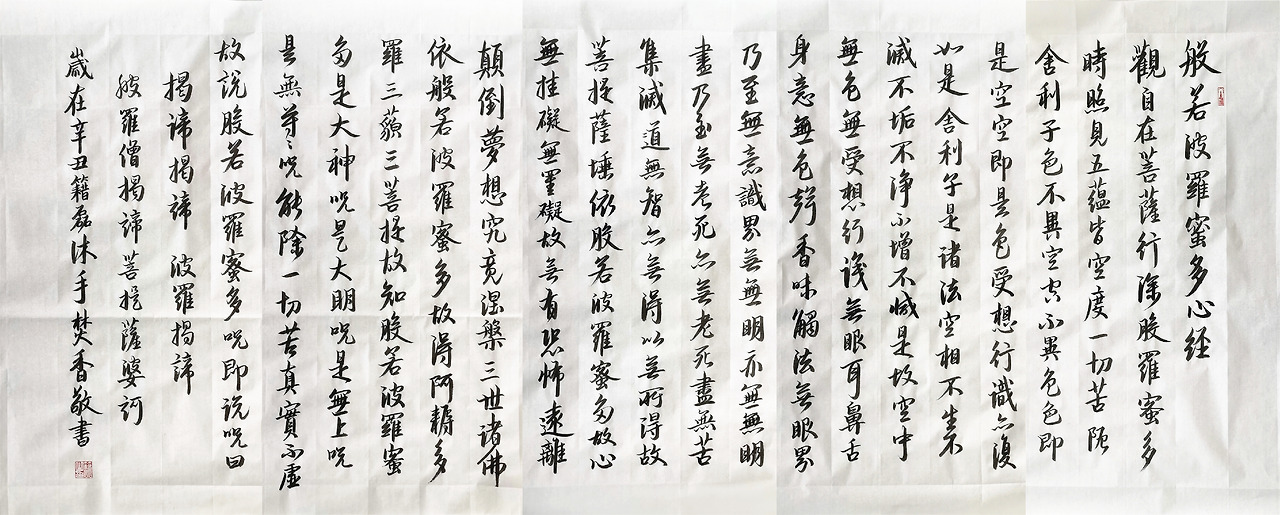 般若波羅蜜多心经
觀自在菩薩行深般羅蜜多
時照見五蘊皆空度一切苦阨
舍利子色不異空空不異色色即
是空空即是色受想行識亦復
如是舍利子是諸法空相不生不
滅不垢不淨不增不減是故空中
無色無受想行識無眼耳鼻舌
身意無色聲香味觸法無眼界
乃至無意識界無無明亦無無明
盡乃至無老死亦無老死盡無苦
集滅道無智亦無得以無所得故
菩提薩埵依般若波羅蜜多故心
無挂礙無罣礙故無有恐怖遠離
顛倒夢想究竟涅槃三世諸佛
依般若波羅蜜多故得阿耨多
羅三藐三菩提故知般若波羅蜜
多是大神咒是大明咒是無上咒
是無等々咒能除一切苦真實不虛
故說般若波羅蜜多咒即說咒曰
揭諦揭諦 波羅揭諦
般羅僧揭諦菩提薩婆訶
歲在辛丑籍磊沐手焚香敬書